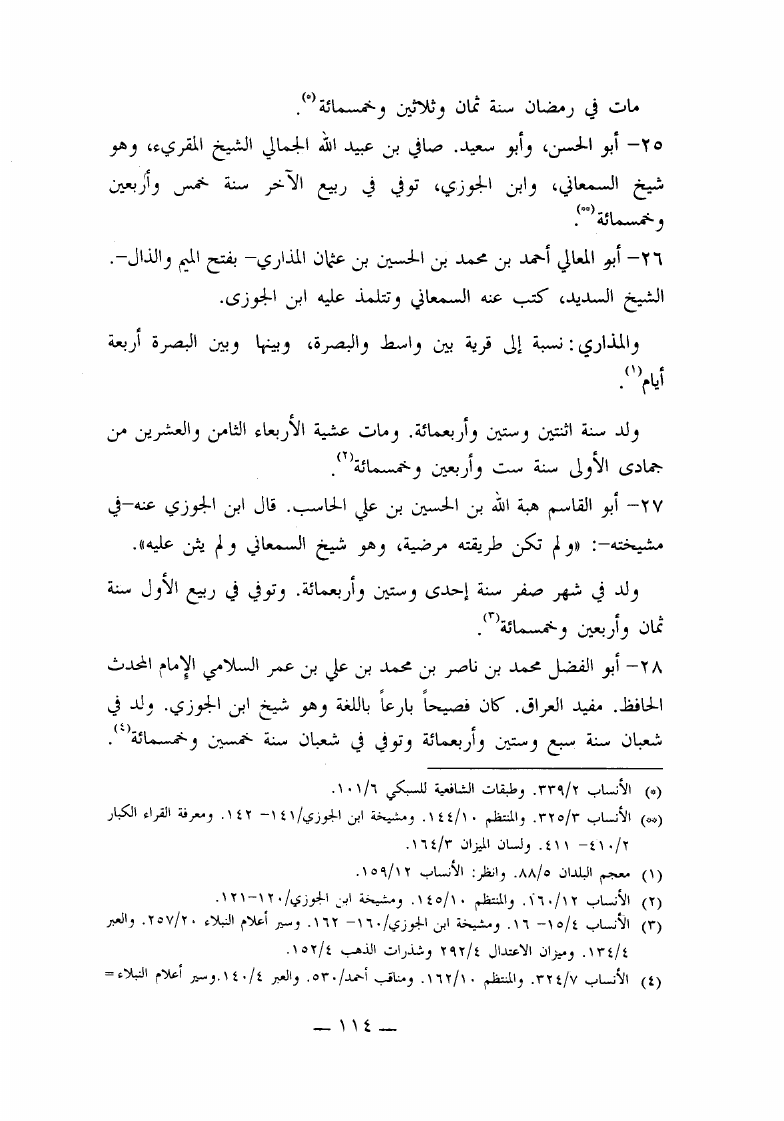 مات في رمضان سنة ثمان وثلاثين وخمسمائة(*).
٢٥- أبو الحسن، وأبو سعيد. صافي بن عبيد الله الجمالي الشيخ المقريء، وهو
شيخ السمعاني، وابن الجوزي، توفي في ربيع الآخر سنة خمس وأربعين
وخمسمائة(**).
٢٦- أبو المعالي أحمد بن محمد بن الحسين بن عثمان المذاري- بفتح الميم والذال-.
الشيخ السديد، كتب عنه السمعاني وتتلمذ عليه ابن الجوزى.
والمذاري: نسبة إلى قرية بين واسط والبصرة، وبينها وبين البصرة أربعة
أيام(١).
ولد سنة اثنتين وستين وأربعمائة. ومات عشية الأربعاء الثامن والعشرين من
جمادى الأولى سنة ست وأربعين وخمسمائة(٢).
٢٧- أبو القاسم هبة الله بن الحسين بن علي الحاسب. قال ابن الجوزي عنه-في
مشيخته-: «ولم تكن طريقته مرضية، وهو شيخ السمعاني ولم يثن عليه».
ولد في شهر صفر سنة إحدى وستين وأربعمائة. وتوفي في ربيع الأول سنة
ثمان وأربعين وخمسمائة(٣).
٢٨- أبو الفضل محمد بن ناصر بن محمد بن علي بن عمر السلامي الإمام المحدث
الحافظ. مفيد العراق. كان فصيحاً بارعاً باللغة وهو شيخ ابن الجوزي. ولد في
شعبان سنة سبع وستين وأربعمائة وتوفي في شعبان سنة خمسين وخمسمائة(٤).
(*) الأنساب ٣٣٩/٢. وطبقات الشافعية للسبكي ١٠١/٦.
(**) الأنساب ٣٢٥/٣. والمنتظم ١٤٤/١٠. ومشيخة ابن الجوزي/١٤١- ١٤٢. ومعرفة القراء الكبار
٤١٠/٢- ٤١١. ولسان الميزان ١٦٤/٣.
(١) معجم البلدان ٨٨/٥. وانظر: الأنساب ١٥٩/١٢.
(٢) الأنساب ١٦٠/١٢. والمنتظم ١٤٥/١٠. ومشيخة ابن الجوزي/١٢٠-١٢١.
(٣) الأنساب ١٥/٤- ١٦. ومشيخة ابن الجوزي/١٦٠- ١٦٢. وسير أعلام النبلاء ٢٥٧/٢٠. والعبر
١٣٤/٤. وميزان الاعتدال ٢٩٢/٤ وشذرات الذهب ١٥٢/٤.
(٤) الأنساب ٣٢٤/٧. والمنتظم ١٦٢/١٠. ومناقب أحمد/٥٣٠. والعبر ١٤٠/٤.وسير أعلام النبلاء=
— ١١٤ —